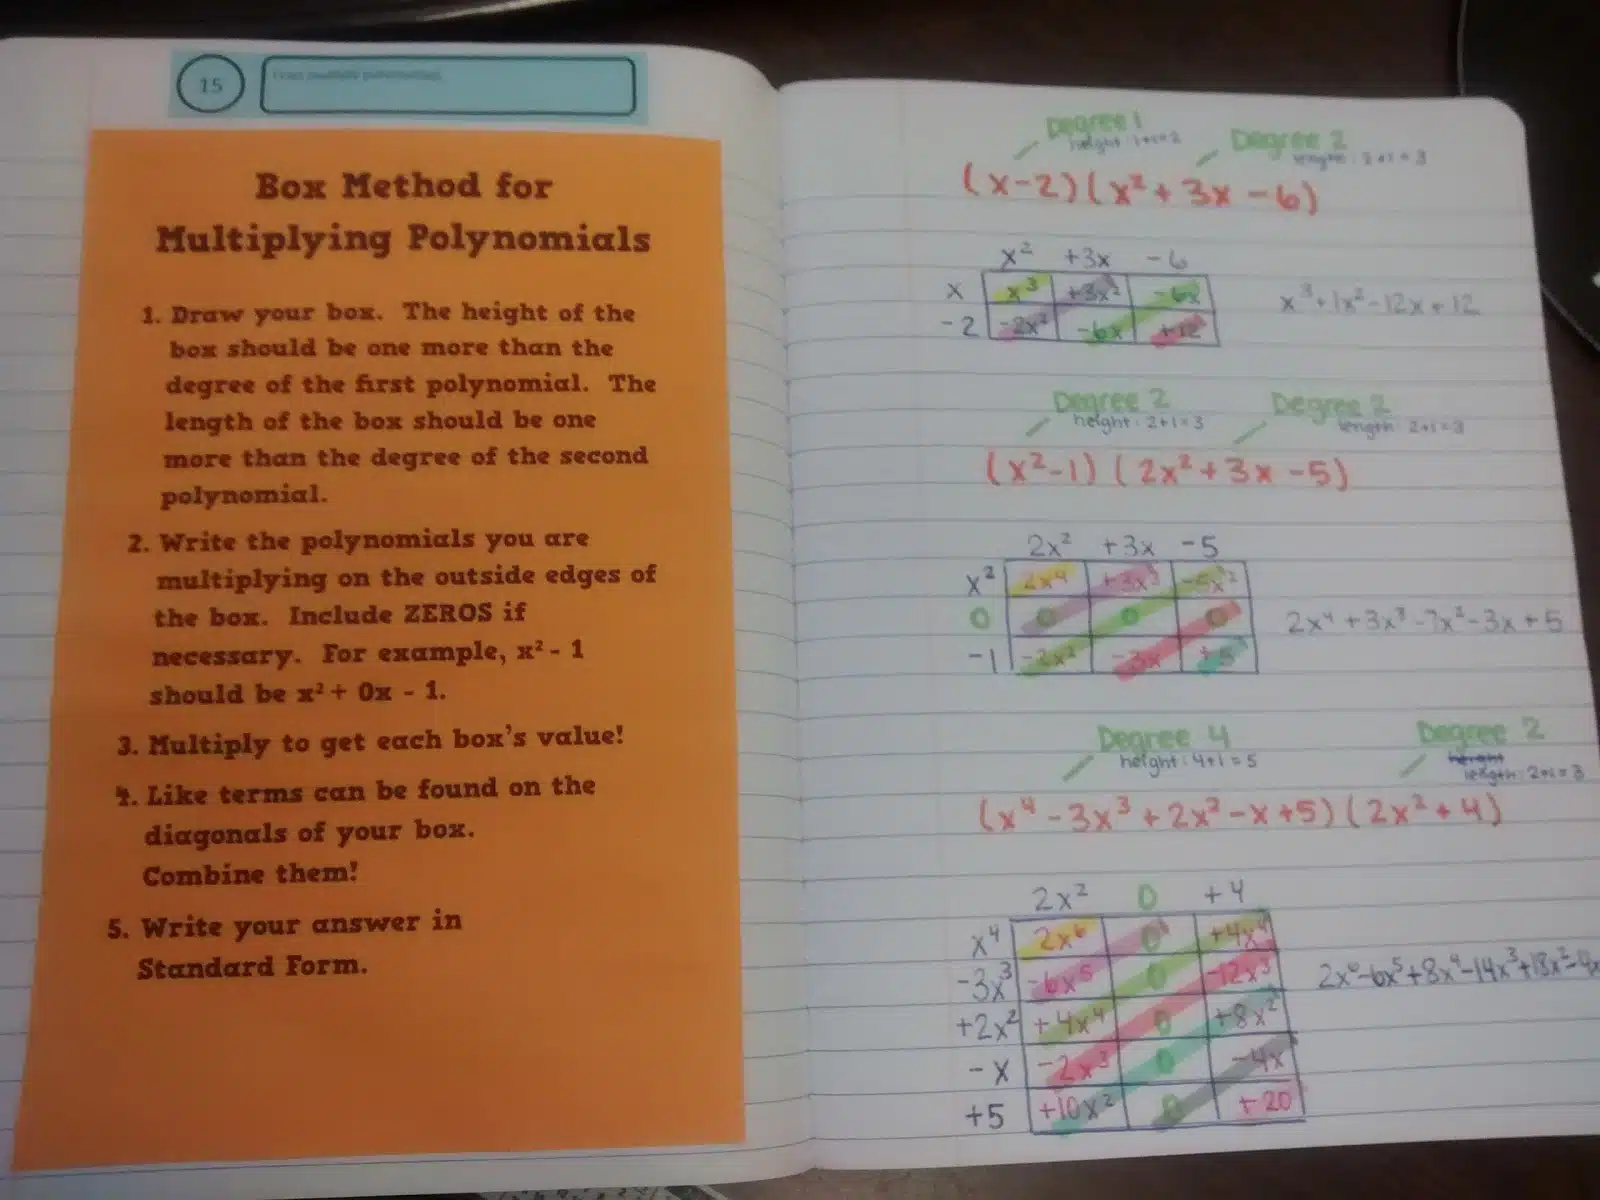 15
I can multiply polynomials.
Box Method for
Multiplying Polynomials
1. Draw your box. The height of the
box should be one more than the
degree of the first polynomial. The
length of the box should be one
more than the degree of the second
polynomial.
2. Write the polynomials you are
multiplying on the outside edges of
the box. Include ZEROS if
necessary. For example, x² - 1
should be x² + 0x - 1.
3. Multiply to get each box's value!
4. Like terms can be found on the
diagonals of your box.
Combine them!
5. Write your answer in
Standard Form.
Degree 1 Degree 2
height: 1+1=2 length: 2+1=3
(x-2)(x²+3x-6)
x² +3x -6
x x³ +3x² -6x
-2 -2x² -6x +12
x³+1x²-12x+12
Degree 2 Degree 2
height: 2+1=3 length: 2+1=3
(x²-1)(2x²+3x-5)
2x² +3x -5
x² 2x⁴ +3x³ -5x²
0 0 0 0
-1 -2x² -3x +5
2x⁴+3x³-7x²-3x+5
Degree 4 Degree 2
height: 4+1=5 height
length: 2+1=3
(x⁴-3x³+2x²-x+5)(2x²+4)
2x² 0 +4
x⁴ 2x⁶ 0 +4x⁴
-3x³ -6x⁵ 0 -12x³
+2x² +4x⁴ 0 +8x²
-x -2x³ 0 -4x
+5 +10x² 0 +20
2x⁶-6x⁵+8x⁴-14x³+18x²-4x